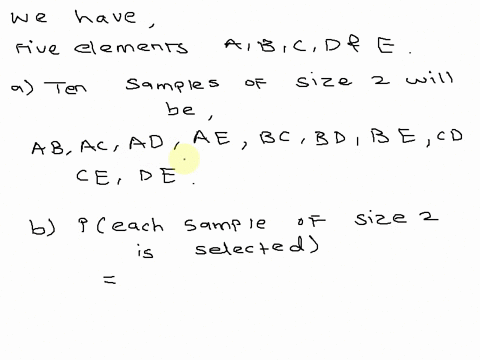 we have,
Five elements A, B, C, D & E.
a) Ten samples of size 2 will
be,
AB, AC, AD, AE, BC, BD, BE, CD
CE, DE.
b) P(each sample of size 2
is selected)
=